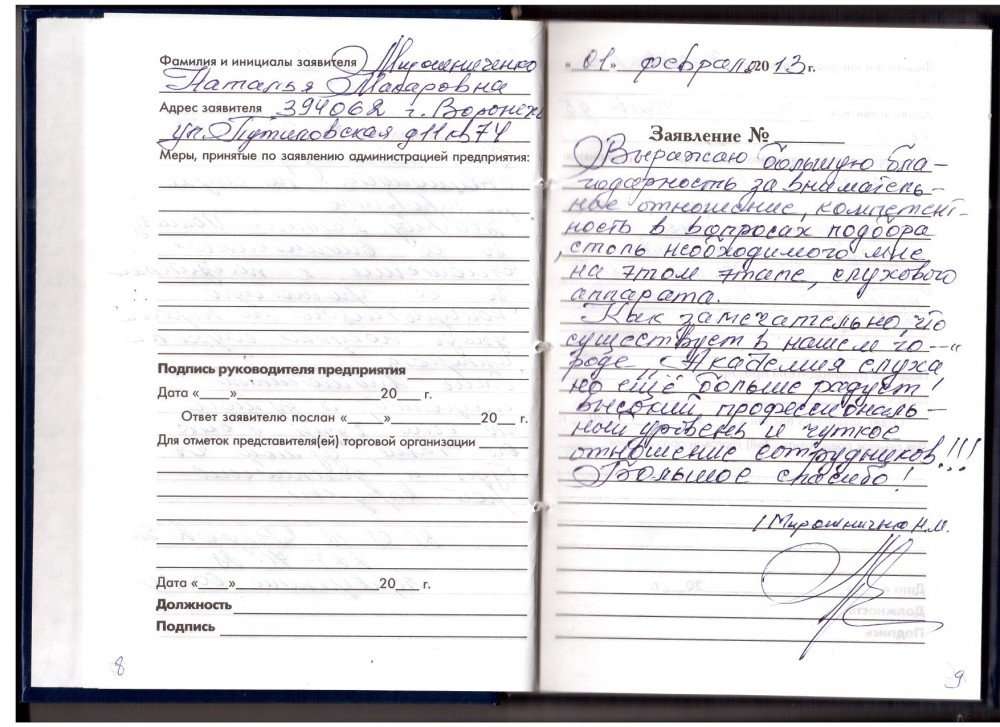 Фамилия и инициалы заявителя Мирошниченко
Наталья Макаровна
Адрес заявителя 394062 г. Воронеж
ул. Путиловская д 11 кв 74
Меры, принятые по заявлению администрацией предприятия:
Подпись руководителя предприятия
Дата «____»____________20___ г.
Ответ заявителю послан «____»____________20___ г.
Для отметок представителя(ей) торговой организации
Дата «____»____________20___ г.
Должность
Подпись
8
«01» февраля 2013 г.
Заявление №
Выражаю большую бла-
годарность за внематель-
ное отношение, компетент-
ность в вопросах подбора
, столь необходимого мне
на этом этапе, слухового
аппарата.
Как замечательно, что
существует в нашем го-
роде „Академия слуха
но ещё больше радует!
высокий профессиональ-
ный уровень и чуткое
отношение сотрудников!!!
Большое спасибо!
/ Мирошниченко Н.М.
9